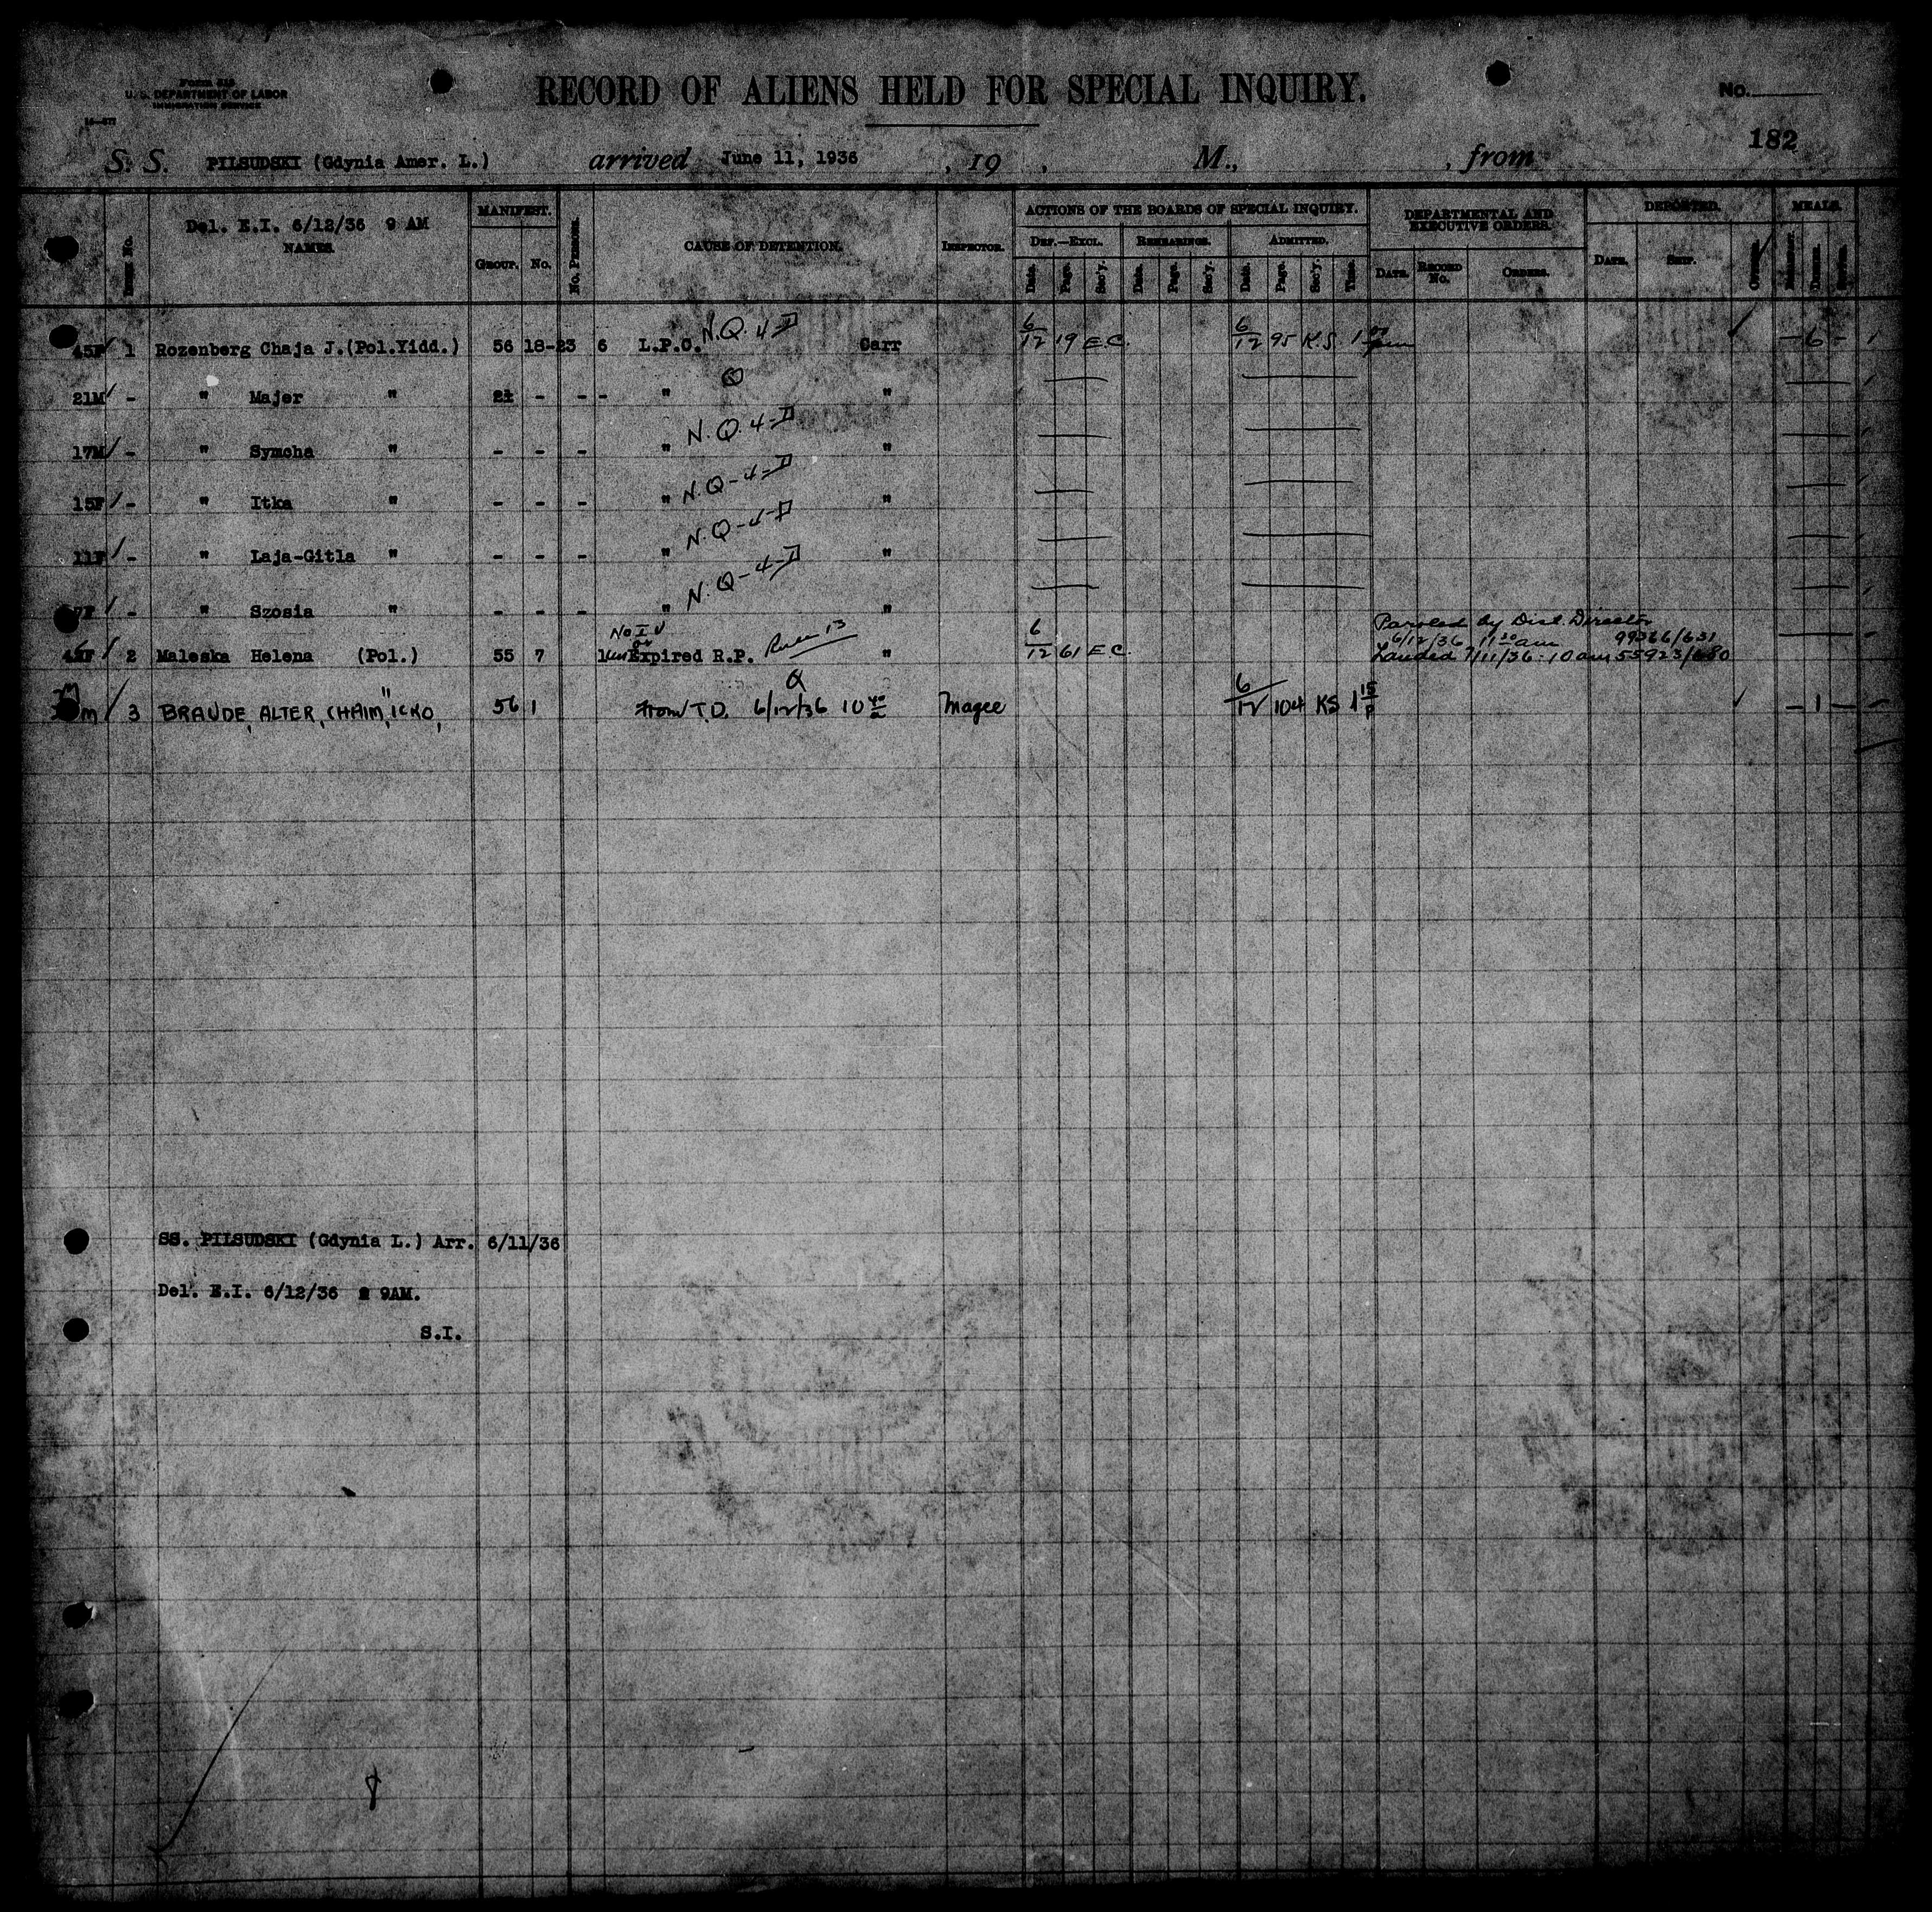 Form 518
U. S. DEPARTMENT OF LABOR
IMMIGRATION SERVICE
RECORD OF ALIENS HELD FOR SPECIAL INQUIRY.
No.
182
S. S. PILSUDSKI (Gdynia Amer. L.) arrived June 11, 1936 , 19 , M., , from
Del. E.I. 6/12/36 9 AM
NAMES.
MANIFEST.
GROUP. NO.
NO. PERSONS.
CAUSE OF DETENTION.
INSPECTOR.
ACTIONS OF THE BOARDS OF SPECIAL INQUIRY.
DEF.—EXCL. REHEARINGS. ADMITTED.
Date. Page. Sec'y. Date. Page. Sec'y. Date. Page. Sec'y. Time.
DEPARTMENTAL AND
EXECUTIVE ORDERS.
DATE. RECORD NO. ORDERS.
DEPORTED.
DATE. SHIP.
MEALS.
45F 1 Rozenberg Chaja J.(Pol.Yidd.) 56 18-23 6 L.P.C. N.Q. 4-D Carr 6/12 19 E.C. 6/12 95 K.S. 1 00 pm - 6 -
21M - " Majer " - - - " "
17M - " Symcha " - - - " N.Q. 4-D "
15F - " Itka " - - - " N.Q-4-D "
11F - " Laja-Gitla " - - - " N.Q-4-D "
7F - " Szosia " - - - " N.Q-4-D "
2 Maleska Helena (Pol.) 55 7 1 No I V or Expired R.P. Rule 13 " 6/12 61 E.C. Paroled by Dist. Director
6/12/36 11 30 am 99366/631
Landed 7/11/36 - 10 am 55923/680
3 BRAUDE, ALTER, CHAIM, "ICKO, 56 1 From T.D. 6/12/36 10 40 a Magee 6/12 104 KS 1 15 P - 1 -
SS. PILSUDSKI (Gdynia L.) Arr. 6/11/36
Del. E.I. 6/12/36 9AM.
S.I.